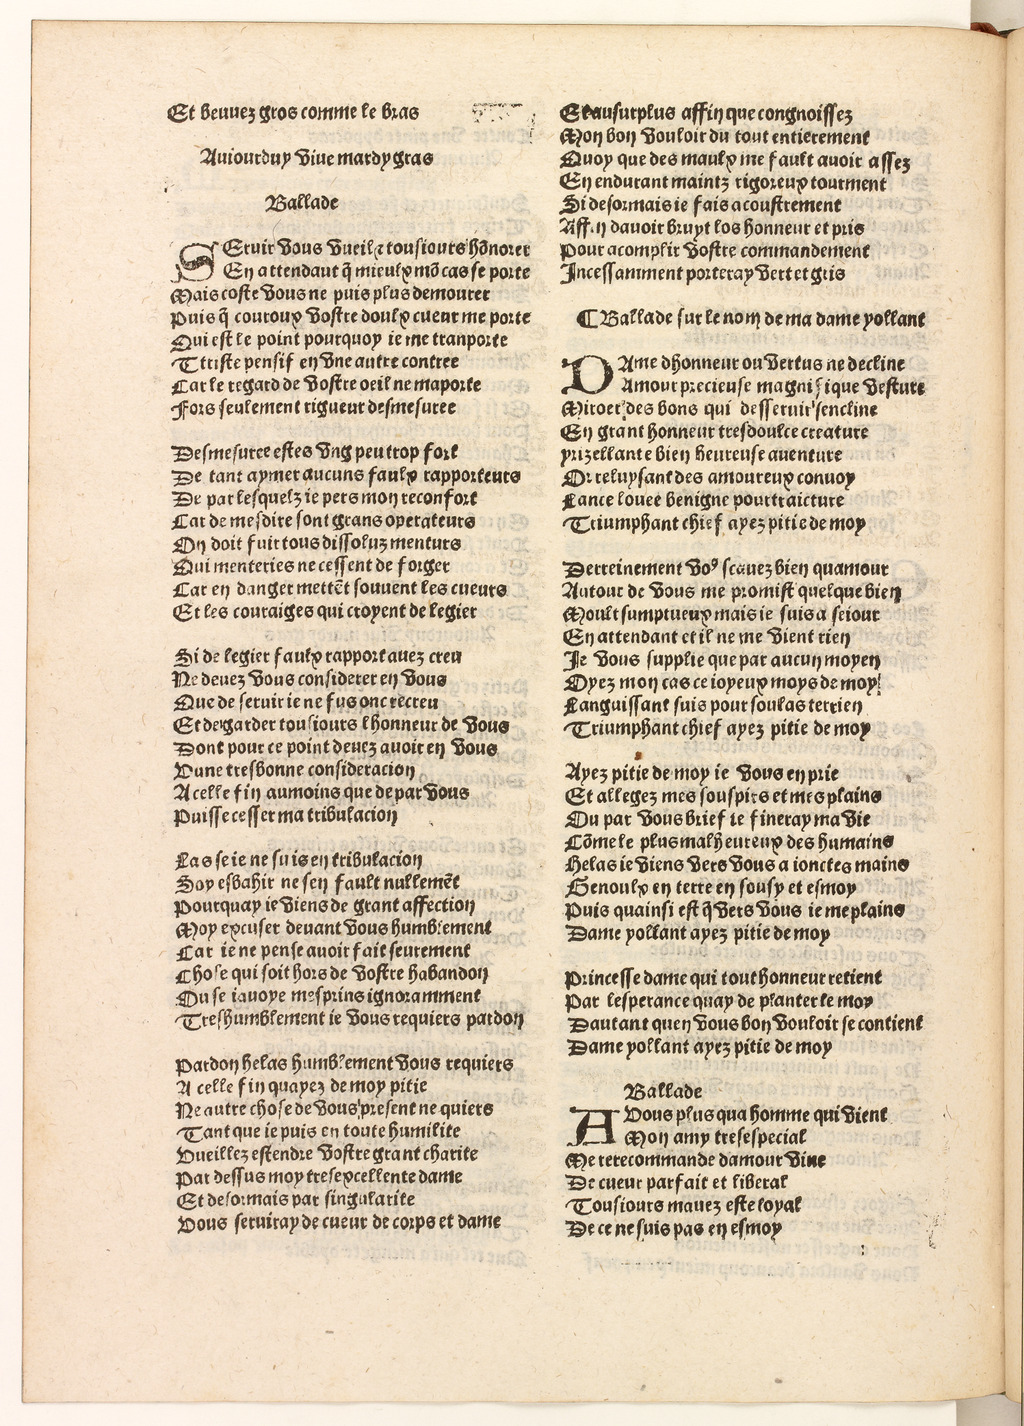 Et beuuez gros comme le bras
Auiourduy viue mardy gras
Ballade
SEruir vous vueil et tousiours hõnorer
En attendant q̃ mieulx mõ cas se porte
Mais coste vous ne puis plus demourer
Puis q̃ couroux vostre doulx cueur me porte
Qui est le point pourquoy ie me tranporte
Ttriste pensif en vne autre contree
Car le regard de vostre oeil ne maporte
Fors seulement rigueur desmesuree
Desmesuree estes vng peu trop fort
De tant aymer aucuns faulx rapporteurs
De par lesquelz ie pers mon reconfort
Car de mesdire sont grans operateurs
On doit fuir tous dissoluz menturs
Qui menteries ne cessent de forger
Car en danger mettẽt souuent les cueurs
Et les couraiges qui croyent de legier
Si de legier faulx rapport auez creu
Ne deuez vous considerer en vous
Que de seruir ie ne fus onc recreu
Et de garder tousiours lhonneur de vous
Dont pour ce point deuez auoir en vous
Vune tresbonne consideracion
A celle fin aumoins que de par vous
Puisse cesser ma tribulacion
Las se ie ne suis en tribulacion
Soy esbahir ne sen fault nullemẽt
Pourquay ie viens de grant affection
Moy excuser deuant vous humblement
Car ie ne pense auoir fait seurement
Chose qui soit hors de vostre habandon
Ou se iauoye mesprins ignoramment
Treshumblement ie vous requiers pardon
Pardon helas humblement vous requiers
A celle fin quayez de moy pitie
Ne autre chose de vous present ne quiers
Tant que ie puis en toute humilite
Vueillez estendre vostre grant charite
Par dessus moy tresexcellente dame
Et desormais par singularite
Vous seruiray de cueur de corps et dame
Et au surplus affin que congnoissez
Mon bon vouloir du tout entierement
Quoy que des maulx me fault auoir assez
En endurant maintz rigoreux tourment
Si desormais ie fais acoustrement
Affin dauoir bruyt los honneur et pris
Pour acomplir vostre commandement
Incessamment porteray vert et gris
¶ Ballade sur le nom de ma dame yollant
DAme dhonneur ou vertus ne decline
Amour precieuse magnifique vesture
Miroer des bons qui desseruir sencline
En grant honneur tresdoulce creature
yrizellante bien heureuse auenture
Or reluysant des amoureux conuoy
Lance louee benigne pourtraicture
Triumphant chief ayez pitie de moy
Derreinement voꝰ scauez bien quamour
Autour de vous me promist quelque bien
Moult sumptueux mais ie suis a seiour
En attendant et il ne me vient rien
Je vous supplie que par aucun moyen
Oyez mon cas ce ioyeux moys de moy
Languissant suis pour soulas terrien
Triumphant chief ayez pitie de moy
Ayez pitie de moy ie vous en prie
Et allegez mes souspirs et mes plains
Ou par vous brief ie fineray ma vie
Cõme le plus malheureux des humains
Helas ie viens vers vous a ionctes mains
Genoulx en terre en sousy et esmoy
Puis quainsi est q̃ vers vous ie me plains
Dame yollant ayez pitie de moy
Princesse dame qui tout honneur retient
Par lesperance quay de planter le moy
Dautant quen vous bon vouloir se contient
Dame yollant ayez pitie de moy
Ballade
A Vous plus qua homme qui vient
Mon amy tresespecial
Me rerecommande damour viue
De cueur parfait et liberal
Tousiours mauez este loyal
De ce ne suis pas en esmoy